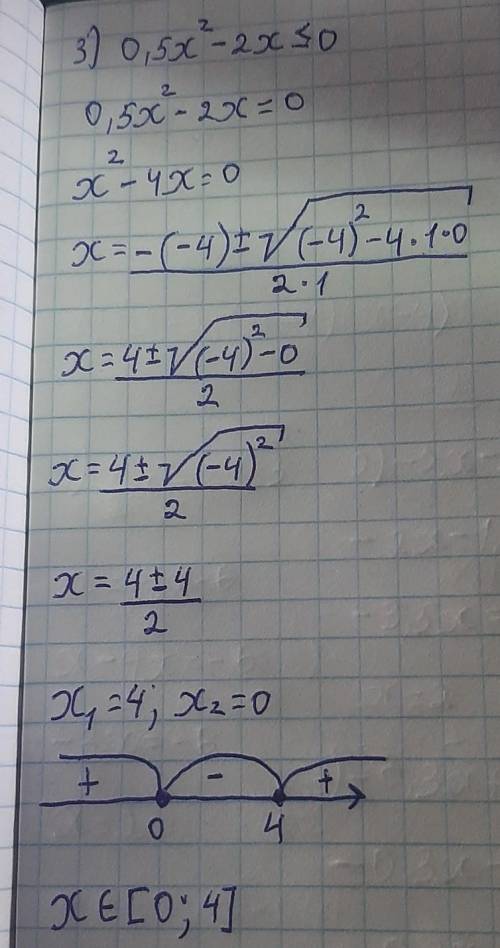 3) 0,5x² - 2x ≤ 0
0,5x² - 2x = 0
x² - 4x = 0
x = -(-4) ± √(-4)² - 4 · 1 · 0
2 · 1
x = 4 ± √(-4)² - 0
2
x = 4 ± √(-4)²
2
x = 4 ± 4
2
x₁ = 4; x₂ = 0
+ - +
0 4
x ∈ [0; 4]